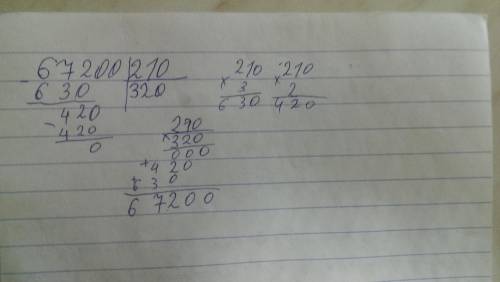 67200 210
- 630 320
420
- 420
0
210
× 3
630
210
× 2
420
290
× 320
000
+ 420
630
67200